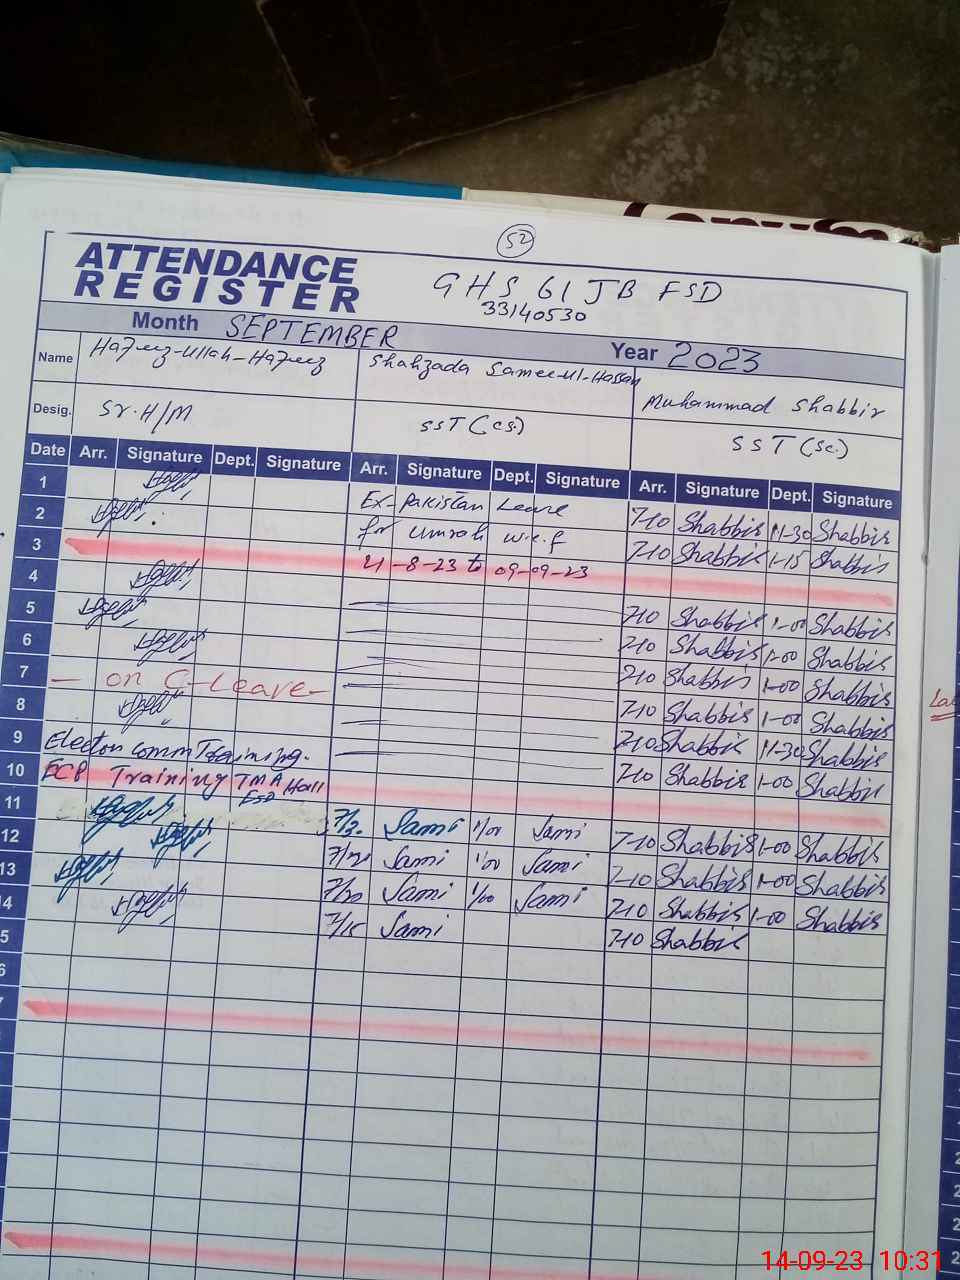 52
ATTENDANCE
REGISTER
GHS 61 JB FSD
33140530
Month SEPTEMBER Year 2023
Name Hafeez-Ullah-Hafeez Shahzada Samee-ul-Hassan Muhammad Shabbir
Desig. Sr. H/M SST (cs.) SST (Sc.)
Date Arr. Signature Dept. Signature Arr. Signature Dept. Signature Arr. Signature Dept. Signature
1 Ex-Pakistan Leave 7-10 Shabbir 11-30 Shabbir
2 for Umrah w.e.f 7-10 Shabbir 1-15 Shabbir
3 21-8-23 to 09-09-23
4 7-10 Shabbir 1-00 Shabbir
5 7-10 Shabbir 1-00 Shabbir
6 7-10 Shabbir 1-00 Shabbir
7 - on C-Leave - 7-10 Shabbir 1-00 Shabbir
8 7-10 Shabbir 11-30 Shabbir
9 Election Comm Training. 7-10 Shabbir 1-00 Shabbir
10 ECP Training TMA Hall
FSD
11 Sami 1/00 Sami 7-10 Shabbir 1-00 Shabbir
12 Sami 1/00 Sami 7-10 Shabbir 1-00 Shabbir
13 Sami 1/00 Sami 7-10 Shabbir 1-00 Shabbir
14 7/15 Sami 7-10 Shabbir
5
6
7
14-09-23 10:31